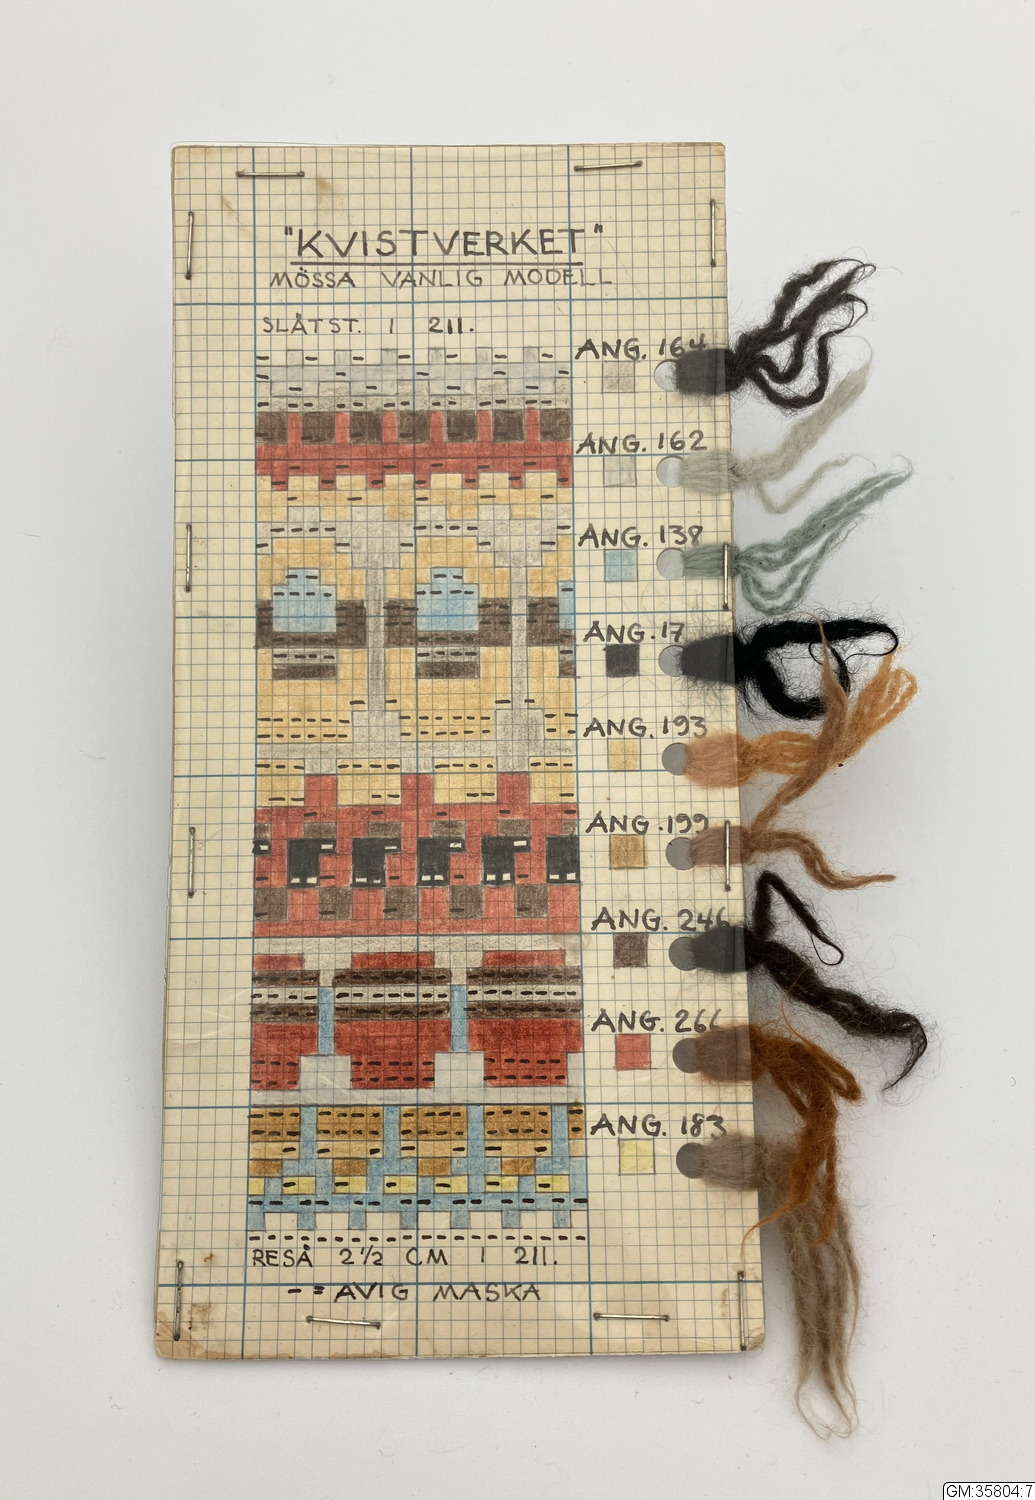 "KVISTVERKET"
MÖSSA VANLIG MODELL
SLÄTST. I 211.
ANG. 164
ANG. 162
ANG. 138
ANG. 17
ANG. 193
ANG. 199
ANG. 246
ANG. 266
ANG. 183
RESÅ 2 1/2 CM I 211.
- = AVIG MASKA
GM:35804:7